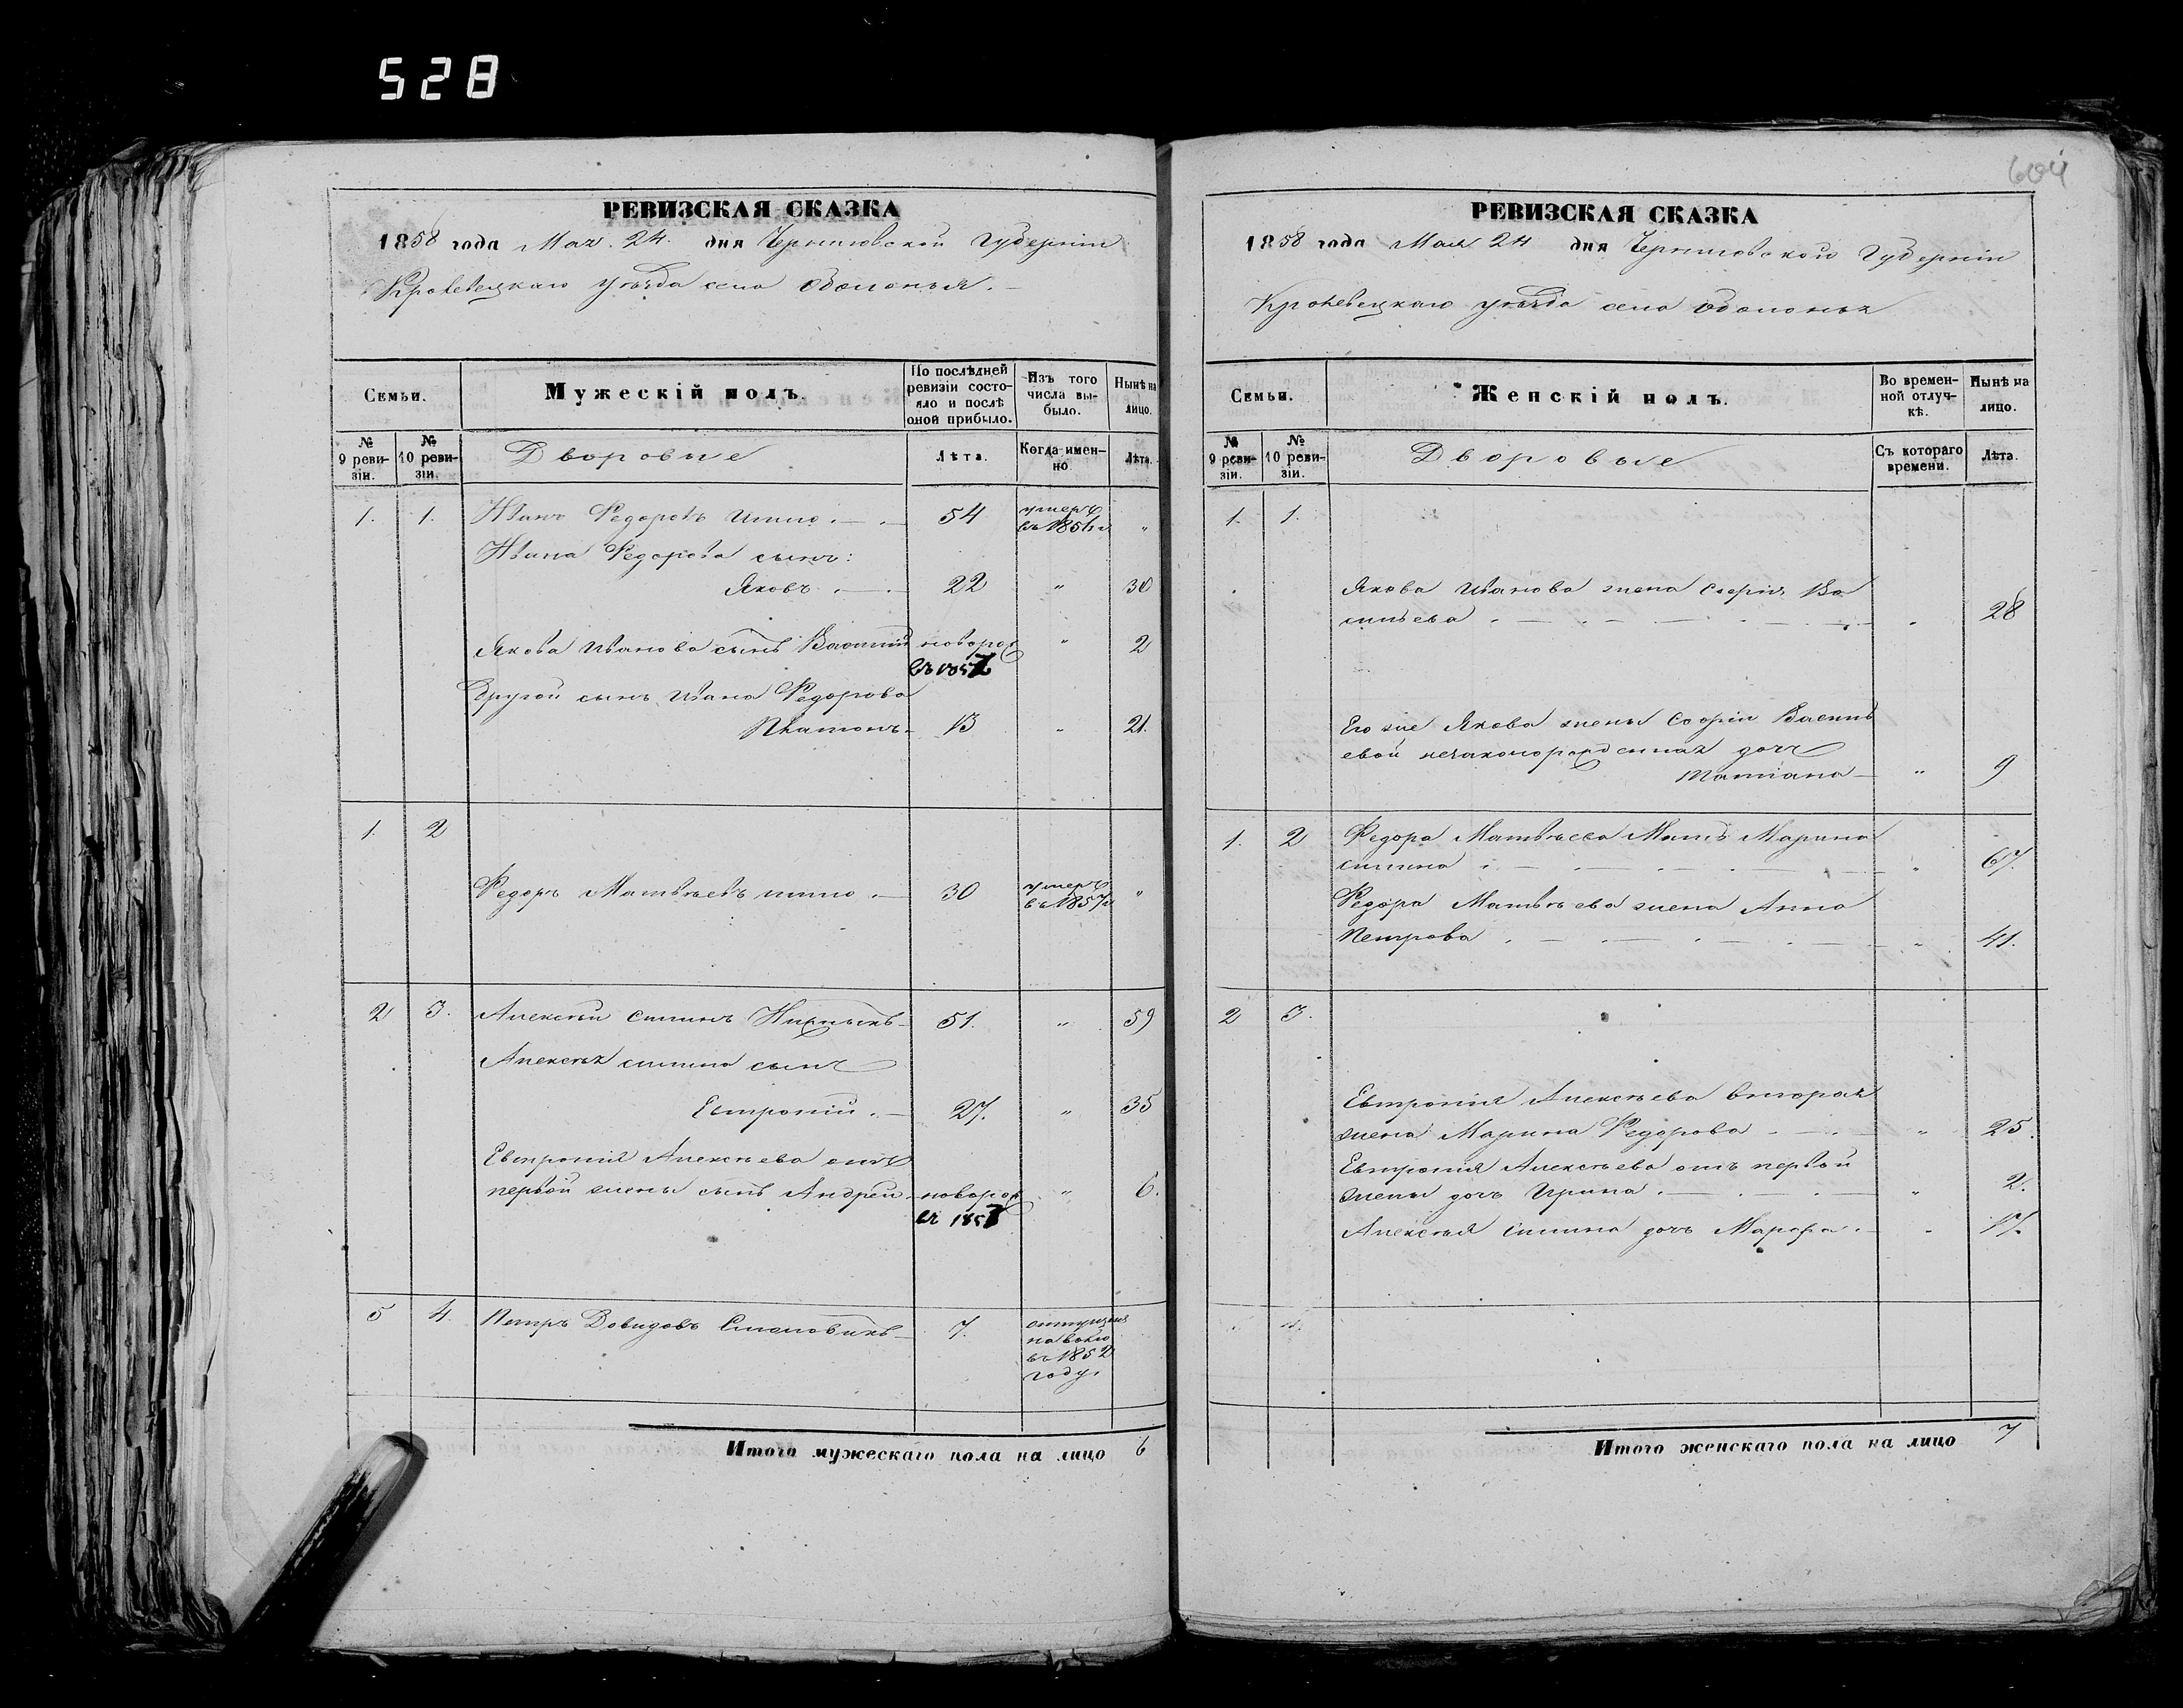 528
РЕВИЗСКАЯ СКАЗКА
1858 года Мая 24 дня Черниговской Губерніи
Кролевецкаго уѣзда села Оболонья.
Семьи.
Мужескій полъ.
По послѣдней ревизіи состояло и послѣ оной прибыло.
Изъ того числа выбыло.
Нынѣ на лицо.
№ 9 ревизіи.
№ 10 ревизіи.
Дворовые
Лѣта.
Когда именно
Лѣта.
1. 1. Иванъ Федоровъ 54 умеръ "
Ивана Федорова сынъ:
Яковъ 22 " 30
Якова Иванова сынъ Василій новорож " 2
Другой сынъ Ивана Федорова
Платонъ 13 " 21.
1. 2
Федоръ Матвѣевъ 30 умеръ "
въ 1857 г
2 3. Алексѣй Силинъ 51. " 59
Алексѣя Силина сынъ
Евтропій 27. " 35
Евтропія Алексѣева отъ
первой жены сынъ Андрей новорож " 6.
5 4. Петръ Давидовъ 7. отпущенъ
на волю
въ 1852
году.
Итого мужескаго пола на лицо 6
604
РЕВИЗСКАЯ СКАЗКА
1858 года Мая 24 дня Черниговской Губерніи
Кролевецкаго уѣзда села Оболонья
Семьи.
Женскій полъ.
Во временной отлучкѣ.
Нынѣ на лицо.
№ 9 ревизіи.
№ 10 ревизіи.
Дворовые
Съ котораго времени.
Лѣта.
1. 1.
Якова Иванова жена Софія Ва
сильева 28
Его же Якова жены Софіи Василь
евой незаконорожденная дочь
Татіана " 9
1. 2 Федора Матвѣева Мать Марина
Силина " 67.
Федора Матвѣева жена Анна
Петрова " 41.
2 3.
Евтропія Алексѣева вторая
жена Марина Федорова " 25.
Евтропія Алексѣева отъ первой
жены дочь Ирина " 2.
Алексѣя Силина дочь Марфа " 17.
4.
Итого женскаго пола на лицо 7